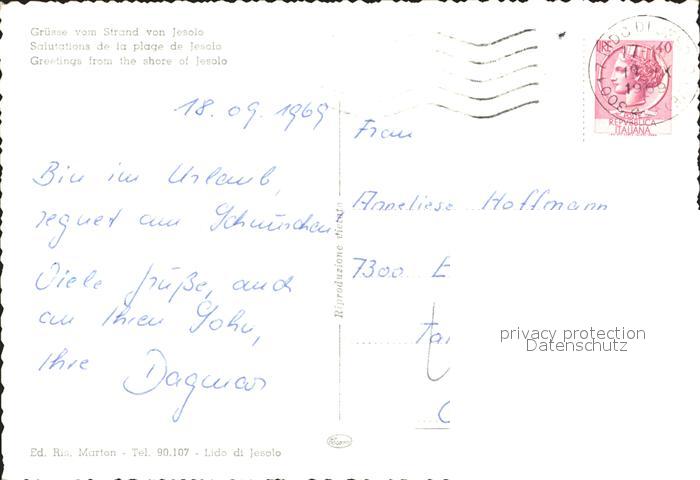 Grüsse vom Strand von Jesolo
Salutations de la plage de Jesolo
Greetings from the shore of Jesolo
18.09.1969
Bin im Urlaub,
regnet am
Viele Grüße, auch
an Ihren Sohn,
Ihre Dagmar
Ed. Ris. Marton - Tel. 90.107 - Lido di Jesolo
Riproduzione vietata
40
REPVBBLICA
ITALIANA
Frau
Anneliese Hoffmann
7300 E
privacy protection
Datenschutz